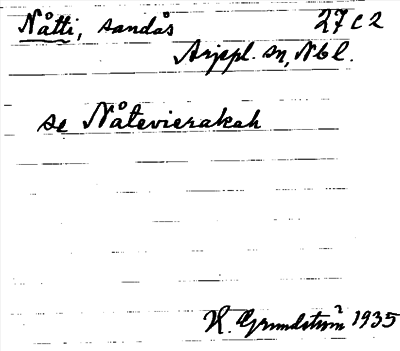 Nåtti, sandås 27 c 2
Arjepl. sn, Nbl.
se Nåtevierakah
H. Grundström 1935